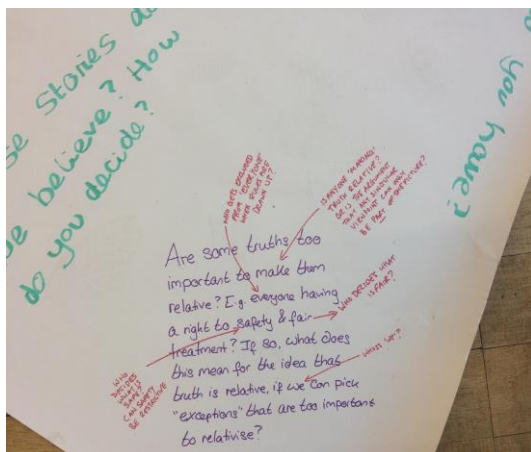 se stories do
we believe? How
do you decide?
you have?
WHO GETS EXCLUDED
FROM 'EVERYONE'
WHEN RULES ARE
DRAWN UP?
IS ANYONE 'MAKING'
TRUTH RELATIVE?
OR IS THE ARGUMENT
THAT ANY SINGULAR
VIEWPOINT CAN ONLY
BE PART OF THE PICTURE?
Are some truths too
important to make them
relative? E.g. everyone having
a right to safety & fair
treatment? If so, what does
this mean for the idea that
truth is relative, if we can pick
"exceptions" that are too important
to relativise?
WHO DECIDES WHAT
IS FAIR?
WHO'S WE?
WHO
DECIDES
WHAT IS
SAFE?
CAN SAFETY
BE RESTRICTIVE